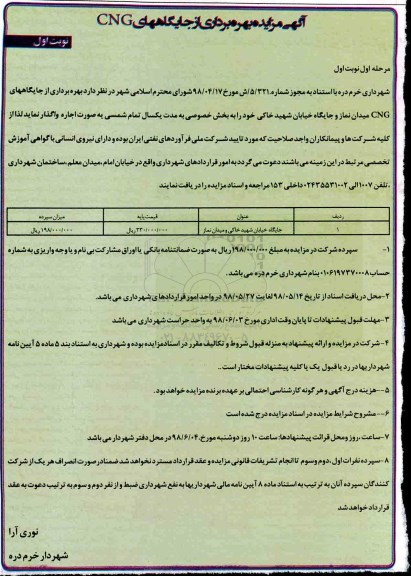 آگهی مزایده بهره برداری از جایگاههای CNG
نوبت اول
مرحله اول نوبت اول
شهرداری خرم دره با استناد به مجوز شماره ۵/۳۲۱/ش مورخ ۹۸/۰۴/۱۷ شورای محترم اسلامی شهر در نظر دارد بهره برداری از جایگاههای
CNG میدان نماز و جایگاه خیابان شهید خاکی خود را به بخش خصوصی به مدت یکسال تمام شمسی به صورت اجاره واگذار نماید لذا از
کلیه شرکت ها و پیمانکاران واجد صلاحیت که مورد تایید شرکت ملی فرآورده های نفتی ایران بوده و دارای نیروی انسانی با گواهی آموزش
تخصصی مرتبط در این زمینه می باشند دعوت می گردد به امور قراردادهای شهرداری واقع در خیابان امام ،میدان معلم،ساختمان شهرداری
،تلفن ۱۰۰۷الی ۰۲۴۳۵۵۳۱۰۰۲ داخلی ۱۵۳ مراجعه و اسناد مزایده را دریافت نمایند
ردیف عنوان قیمت پایه میزان سپرده
۱ جایگاه خیابان شهید خاکی و میدان نماز ۳۳۰/۰۰۰/۰۰۰ ریال ۱۹۸/۰۰۰/۰۰۰ ریال
۱- سپرده شرکت در مزایده به مبلغ ۱۹۸/۰۰۰/۰۰۰ ریال به صورت ضمانتنامه بانکی یا اوراق مشارکت بی نام و یا وجه واریزی به شماره
حساب ۰۱۰۶۱۹۷۳۷۰۰۰۸ بنام شهرداری خرم دره می باشد .
۲-محل دریافت اسناد از تاریخ ۹۸/۰۵/۱۴ لغایت ۹۸/۰۵/۲۷ در واحد امور قراردادهای شهرداری می باشد.
۳-مهلت قبول پیشنهادات تا پایان وقت اداری مورخ ۹۸/۰۶/۰۳ به واحد حراست شهرداری می باشد
۴-شرکت در مزایده و ارائه پیشنهاد به منزله قبول شروط و تکالیف مقرر در اسناد مزایده بوده و شهرداری به استناد بند ۵ ماده ۵ آیین نامه
شهرداریها در رد یا قبول یک یا کلیه پیشنهادات مختار است..
۵--هزینه درج آگهی و هر گونه کارشناسی احتمالی بر عهده برنده مزایده خواهد بود.
۶-- مشروح شرایط مزایده در اسناد مزایده درج شده است
۷-ساعت ،روز ومحل قرائت پیشنهادها: ساعت ۱۰ روز دوشنبه مورخ ۹۸/۶/۰۴ در محل دفتر شهردار می باشد
۸-سپرده نفرات اول ، دوم وسوم تا انجام تشریفات قانونی مزایده و عقد قرارداد مسترد نخواهد شد ضمنا در صورت انصراف هر یک از شرکت
کنندگان سپرده آنان به ترتیب به استناد ماده ۸ آیین نامه مالی شهرداریها به نفع شهرداری ضبط و از نفر دوم و سوم به ترتیب دعوت به عقد
قرارداد خواهد شد
نوری آرا
شهردار خرم دره